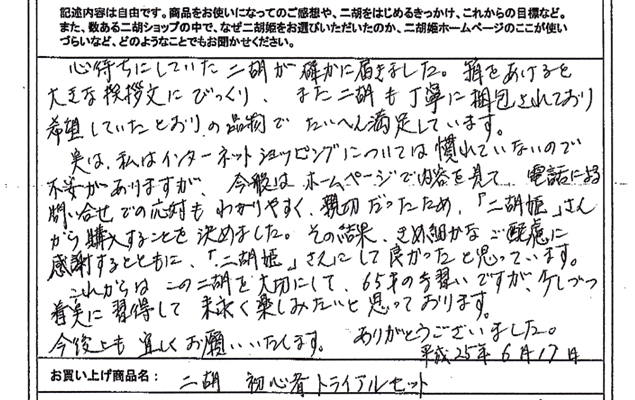 記述内容は自由です。商品をお使いになってのご感想や、二胡をはじめるきっかけ、これからの目標など。
また、数ある二胡ショップの中で、なぜ二胡姫をお選びいただいたのか、二胡姫ホームページのここが使い
づらいなど、どのようなことでもお聞かせください。
心待ちにしていた二胡が確かに届きました。箱をあけると
大きな挨拶文にびっくり、また二胡も丁寧に梱包されており
希望していたとおりの品物でたいへん満足しています。
実は、私はインターネットショッピングについては慣れていないので
不安がありますが、今般はホームページで内容を見て、電話による
問い合せでの応対もわかりやすく、親切だったため、「二胡姫」さん
から購入することを決めました。その結果、きめ細かなご配慮に
感謝するとともに、「二胡姫」さんにして良かったと思っています。
これからはこの二胡を大切にして、65才の手習いですが、少しづつ
着実に習得して末永く楽しみたいと思っております。
今後とも宜しくお願いいたします。 ありがとうございました。
平成25年6月17日
お買い上げ商品名： 二胡 初心者トライアルセット